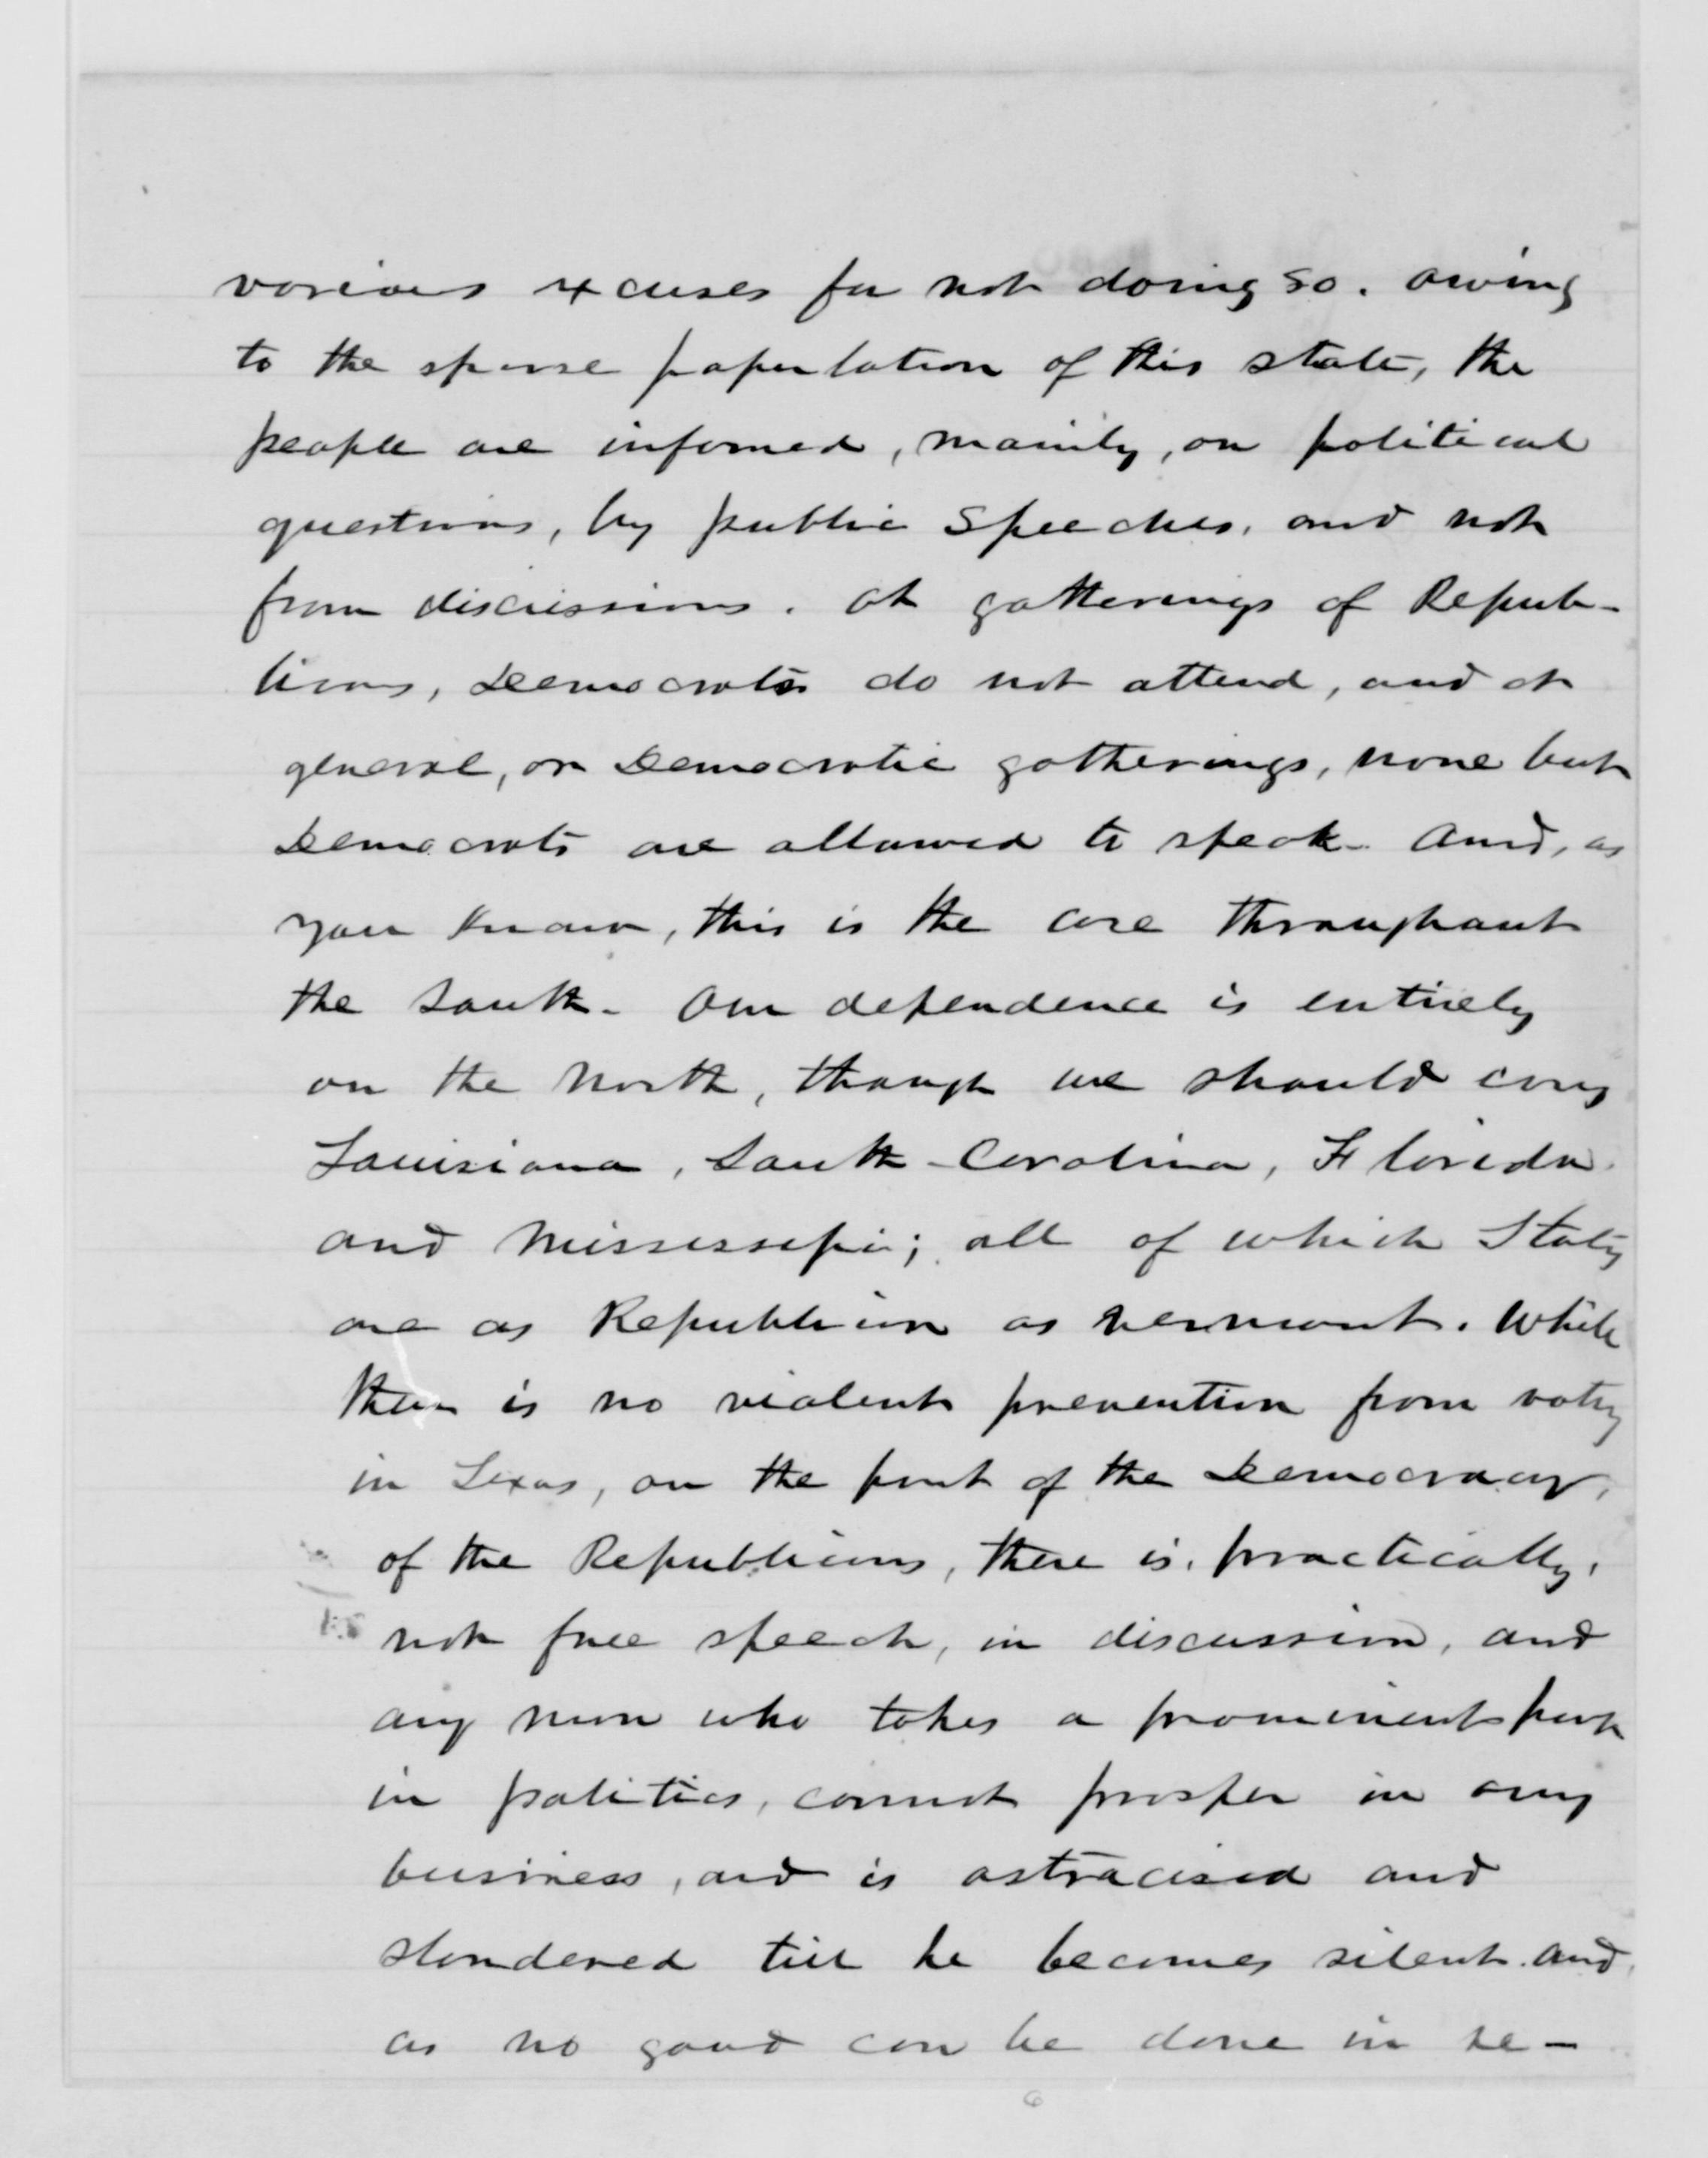 various excuses for not doing so. Owing
to the sparse population of this state, the
people are informed, mainly, on political
questions, by public speeches, and not
from discussions. At gatherings of Repub-
licans, Democrats do not attend, and at
general, or Democratic gatherings, none but
Democrats are allowed to speak. And, as
you know, this is the case throughout
the South. Our dependence is entirely
on the North, though we should carry
Louisiana, South-Carolina, Florida
and Mississippi; all of which States
are as Republican as Vermont. While
there is no violent prevention from voting
in Texas, on the part of the Democracy,
of the Republicans, there is, practically,
not free speech, in discussion, and
any man who takes a prominent part
in politics, cannot prosper in any
business, and is ostracised and
slandered till he becomes silent. And
as no good can be done in re-